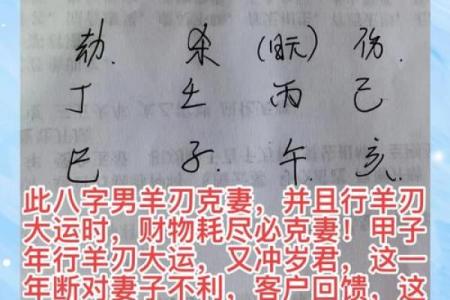 劫 杀 (日元) 伤
丁 壬 丙 己
巳 子 午 亥
此八字男羊刃克妻，并且行羊刃
大运时，财物耗尽必克妻！甲子
年行羊刃大运，又冲岁君，这一
年断对妻子不利，客户回馈，这